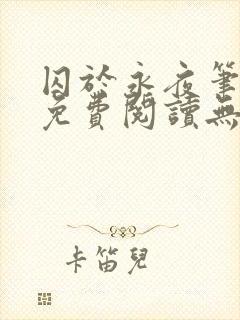 囚於永夜筆
免費閱讀無
卡笛兒